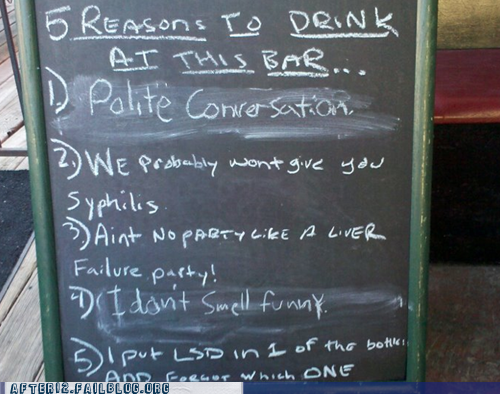 5 REASONS TO DRINK
AT THIS BAR...
1.) Polite Conversation.
2.) WE Probably wont give you
Syphilis.
3.) Aint NO PARTY LIKE A LIVER
Failure party!
4.) I don't Smell funny.
5.) I put LSD in 1 of the bottles
AND Forgot which ONE
AFTER12.FAILBLOG.ORG